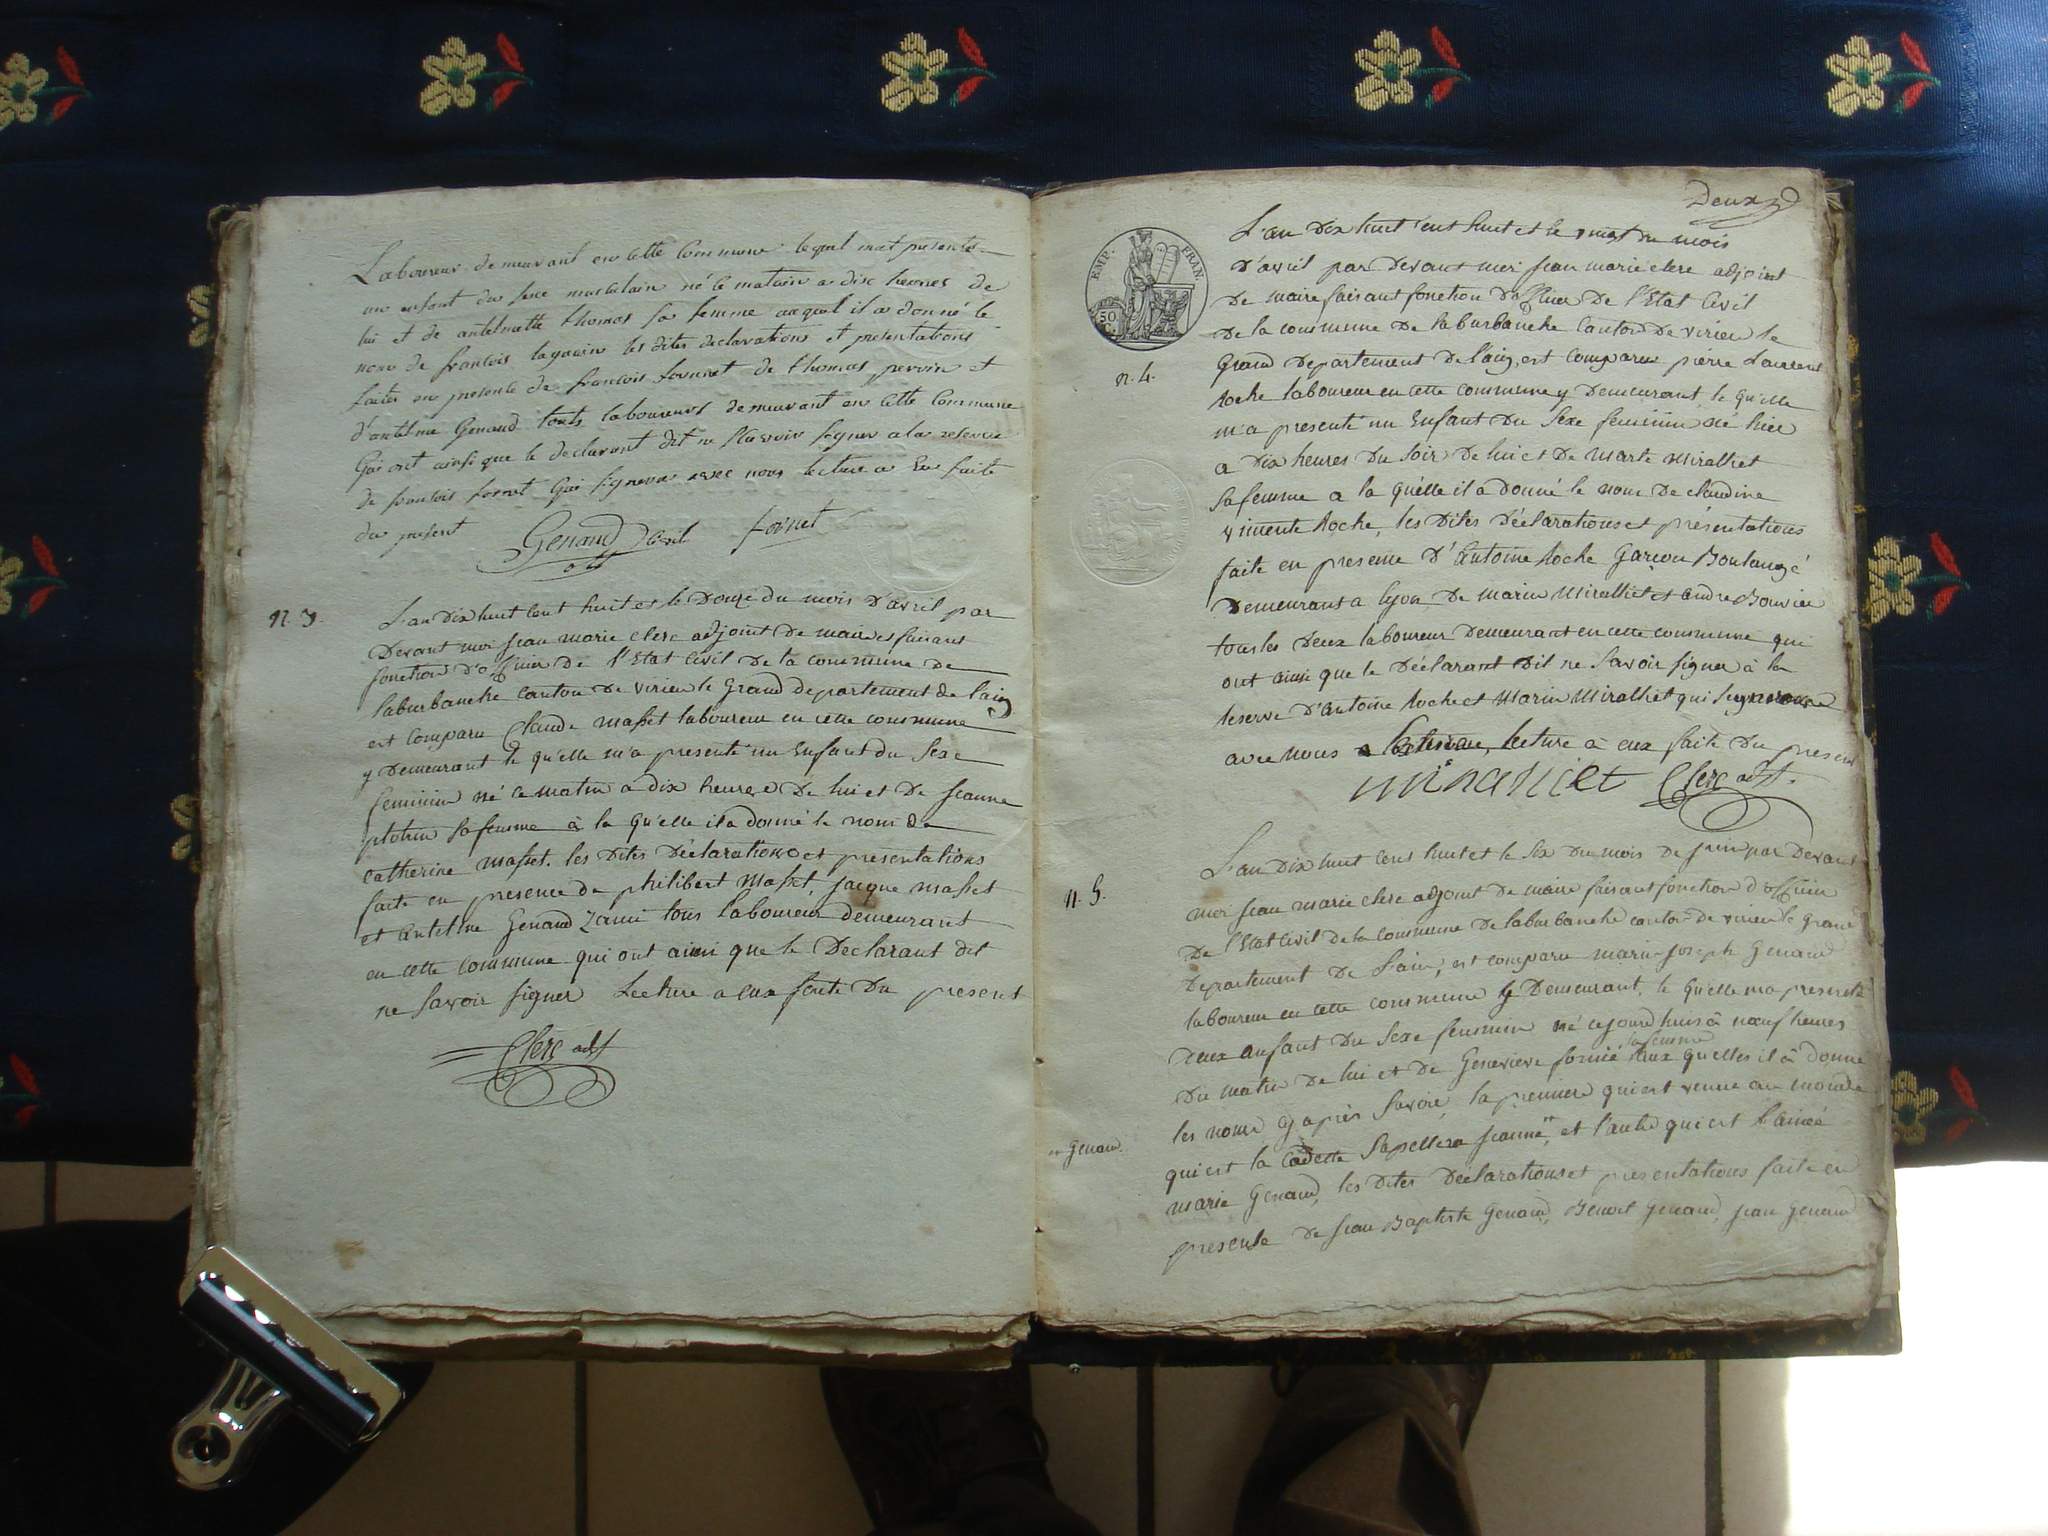 Laboureur demeurant en cette Commune lequel m'at présentés
un enfant du sexe masculain né le matain a dix heures de
lui et de antelmette thomas sa femme auquel il a donné le
nom de françois lagouin les dites declarations et présentations
faites en présente de françois fornet de thomas pervin et
d'antelme Genaud touts laboureurs demeurant en cette Commune
Qui ont ainsi que le declarant dit ne scavoir signer a la reserve
de françois fornet Qui signera avec nous lecture a Eu faite
du présent
Genaud fornet
n. 3.
L'an dix huit cent huit et le Douze du mois d'avril par
Devant moi Jean marie clerc adjoint de maire faisant
fonction d'officier de l'Etat Civil De la commune de
laburbanche canton De virieu le Grand departement de l'ain
est comparu Claude masset laboureur en cette commune
y Demeurant le qu'elle m'a presenté un Enfant du sexe
feminin né ce matin a dix heures De lui et De Jeanne
plotin sa femme à la qu'elle il a donné le nom de
catherine masset. les Dites Déclarations et présentations
faite en presence de philibert masset, jacque masset
et antelme Genaud Zami tous laboureur demeurant
en cette commune qui ont ainsi que le Declarant dit
ne Savoir signer Lecture a eux faite Du present
Clerc adjt
Deux
EMP. FRAN.
50 C.
L'an Dix huit cent huit et le vingt du mois
D'avril par Devant moi Jean marie clerc adjoint
De maire faisant fonction d'officier De l'Etat Civil
De la commune De laburbanche Canton De virieu le
n. 4.
Grand Departement De l'ain, est Comparu pierre Laurent
Roche laboureur en cette commune y Demeurant, le qu'elle
m'a presenté un Enfant Du Sexe feminin né hier
a Dix heures Du Soir De lui et De Marte Miralliet
sa femme a la qu'elle il a Donné le nom De Claudine
vincente Roche, les Dites Déclarations et présentations
faite en presence D'Antoine Roche Garçon Boulangé
Demeurant a lyon De Marin Miralliet et andre Bouvier
tous les Deux laboureur Demeurant en cette commune qui
ont ainsi que le Déclarant Dit ne Savoir signer à la
reserve D'antoine Roche et Marin Miralliet qui signeront
avec nous lecture à eux faite Du present
miralliet Clerc adjt.
n. 5.
L'an Dix huit cent huit et le Six Du mois de Juin par Devant
moi Jean marie clerc adjoint de maire faisant fonction d'officier
De l'Etat Civil de la commune De laburbanche canton de virieu le grand
Departement De L'ain, est comparu marin Joseph Genaud
laboureur en cette commune y Demeurant, le qu'elle m'a presenté
Deux Enfant Du Sexe feminin né cejourd'huis à neuf heures
Du matin De lui et De Genevieve fornié sa femme aux quelles il à Donné
les noms cy après Savoir, la premiere qui est venue au monde
qui est la cadette S'apellera Jeanne", et l'autre qui est l'ainée
" Genaud.
marie Genaud, les Dites Déclarations et présentations faite en
presence De Jean Baptiste Genaud, Benoit Genaud, Jean Genaud